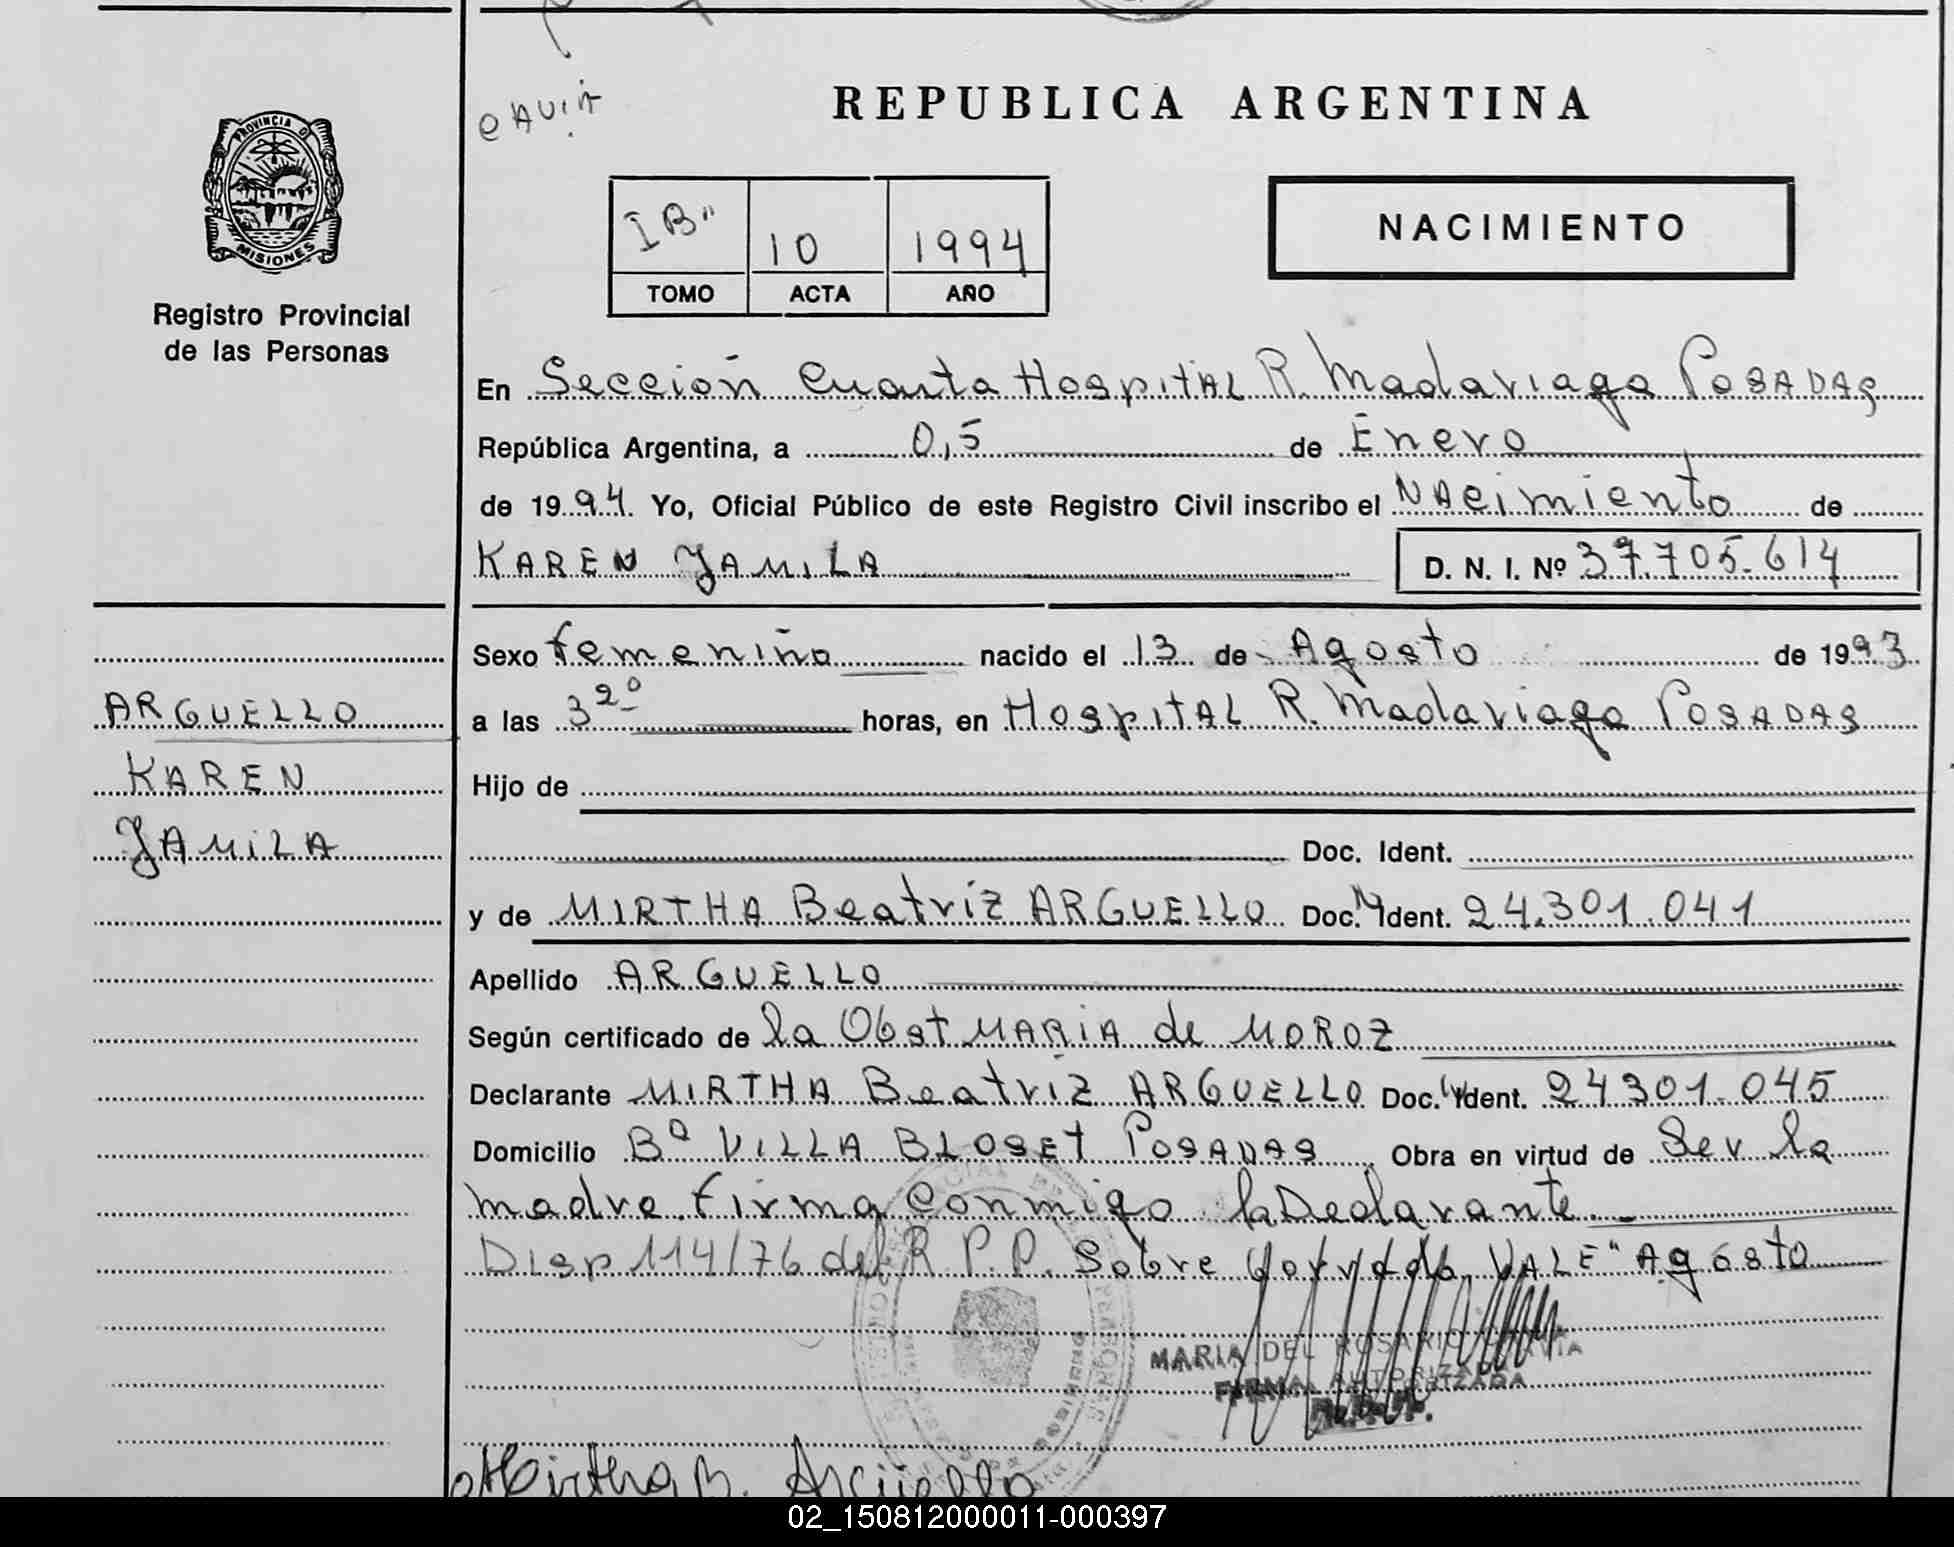 REPUBLICA ARGENTINA
PROVINCIA D
MISIONES
Registro Provincial
de las Personas
IB" 10 1994
TOMO ACTA AÑO
NACIMIENTO
En Sección Cuarta Hospital R. Madariaga Posadas
República Argentina, a 0,5 de Enero
de 1994. Yo, Oficial Público de este Registro Civil inscribo el Nacimiento de
KAREN YAMILA D. N. I. Nº 37.705.614
Sexo femenino nacido el 13 de Agosto de 1993
a las 3 20 horas, en Hospital R. Madariaga Posadas
Hijo de
Doc. Ident.
y de MIRTHA Beatriz ARGUELLO Doc. Ident. 24.301.041
Apellido ARGUELLO
Según certificado de la Obst MARIA de MOROZ
Declarante MIRTHA Beatriz ARGUELLO Doc. Ident. 24301.045
Domicilio Bº VILLA BLOSET POSADAS Obra en virtud de Ser la
madre. firma conmigo la Declarante.-
Disp 114/76 del R P.P. Sobre VALE "Agosto
ARGUELLO
KAREN
YAMILA
MARIA DEL ROSARIO
FIRMA AUTORIZADA
Mirtha B. Argüello
02_150812000011-000397